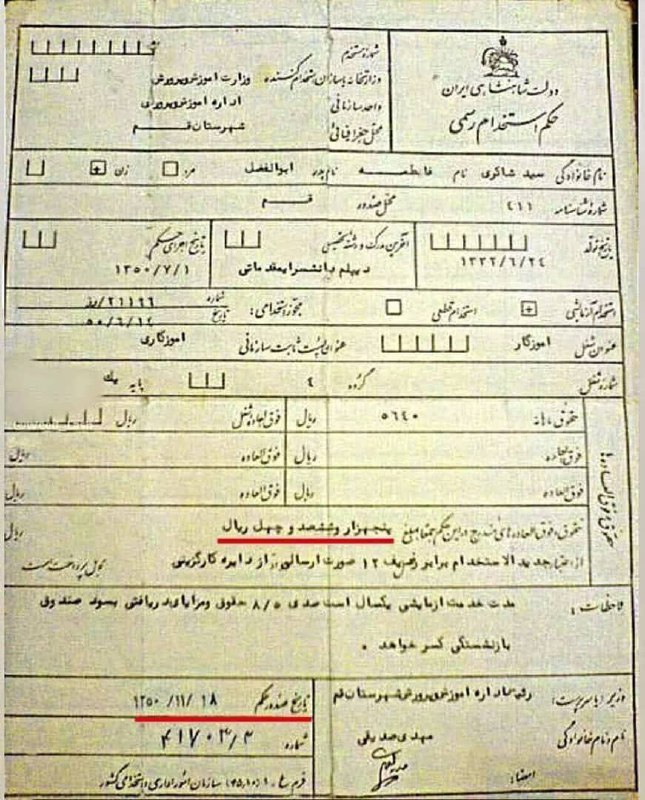 دولت شاهنشاهی ایران
حکم استخدام رسمی
شماره مستخدم
وزارتخانه یا سازمان استخدام کننده وزارت آموزش و پرورش
واحد سازمانی اداره آموزش و پرورش
محل جغرافیائی شهرستان قم
نام خانوادگی سید شاکری نام فاطمه نام پدر ابوالفضل مرد زن +
شماره شناسنامه ٤١١ محل صدور قم
تاریخ تولد ١٣٣٢/٦/٢٤ آخرین مدرک و رشته تحصیلی دیپلم دانشسرایمقدماتی تاریخ اجرای حکم ١٣٥٠/٧/١
استخدام آزمایشی + استخدام قطعی مجوز استخدامی: شماره ٢١١٦٦/رز
تاریخ ٥٠/٦/١٤
عنوان شغل آموزگار عنوان پست ثابت سازمانی آموزگاری
شماره شغل گروه ٤ پایه یک
حقوق و فوق العاده ها
حقوق ماهانه ٥٦٤٠ ریال فوق العاده شغل ریال
فوق العاده ریال فوق العاده ریال
فوق العاده ریال فوق العاده ریال
حقوق و فوق العاده های مندرج در این حکم جمعا مبلغ پنجهزار و ششصد و چهل ریال ریال
از اعتبار جدید الاستخدام برابر ردیف ١٢ صورت ارسالی از دایره کارگزینی قابل پرداخت است
ملاحظات : مدت خدمت ازمایشی یکسال است صدی ٨/٥ حقوق ومزایای دریافتی بسود صندوق
بازنشستگی کسر خواهد .
وزیر یا سرپرست: رئیس اداره آموزش و پرورش شهرستان قم
نام و نام خانوادگی مهدی صدیقی
امضاء:
تاریخ صدور حکم ١٨ /١١/ ١٣٥٠
شماره ٤١٧٠٣/٢
سازمان امور اداری و استخدامی کشور